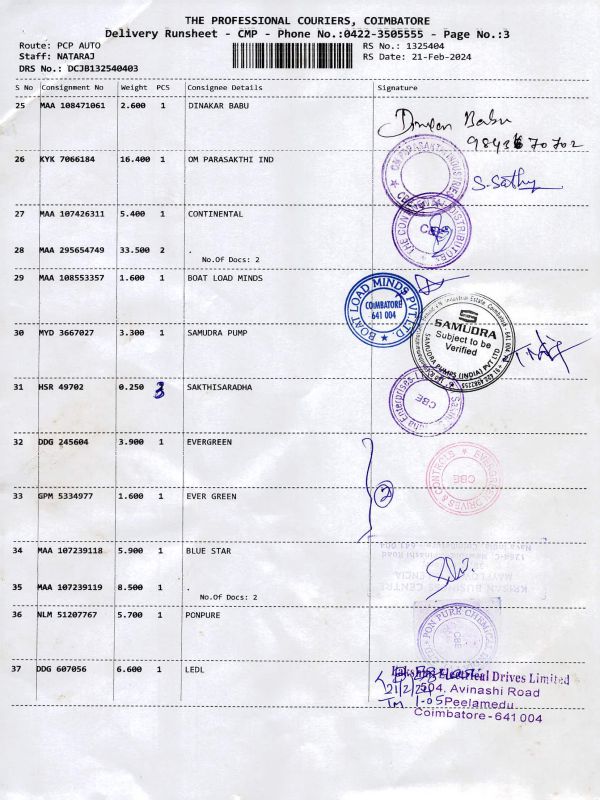 THE PROFESSIONAL COURIERS, COIMBATORE
Delivery Runsheet - CMP - Phone No.:0422-3505555 - Page No.:3
Route: PCP AUTO RS No.: 1325404
Staff: NATARAJ RS Date: 21-Feb-2024
DRS No.: DCJB132540403
S No Consignment No Weight PCS Consignee Details Signature
25 MAA 108471061 2.600 1 DINAKAR BABU
Babu
26 KYK 7066184 16.400 1 OM PARASAKTHI IND
OM PARASAKTHI INDUSTRIES
S. Sathy
27 MAA 107426311 5.400 1 CONTINENTAL
28 MAA 295654749 33.500 2 .
No.Of Docs: 2
29 MAA 108553357 1.600 1 BOAT LOAD MINDS
BOAT LOAD MINDS PVT.LTD.
COIMBATORE
641 004
30 MYD 3667027 3.300 1 SAMUDRA PUMP
SAMUDRA
Subject to be
Verified
SAMUDRA PUMPS (INDIA) PVT LTD
31 HSR 49702 0.250 3 SAKTHISARADHA
CBE
32 DDG 245604 3.900 1 EVERGREEN
CBE
33 GPM 5334977 1.600 1 EVER GREEN
2
34 MAA 107239118 5.900 1 BLUE STAR
35 MAA 107239119 8.500 1 .
No.Of Docs: 2
36 NLM 51207767 5.700 1 PONPURE
PON PURE CHEMICAL
CBE
37 DDG 607056 6.600 1 LEDL
Lakshmi Electrical Drives Limited
504, Avinashi Road
Peelamedu
Coimbatore - 641 004
21/2/24
1-05